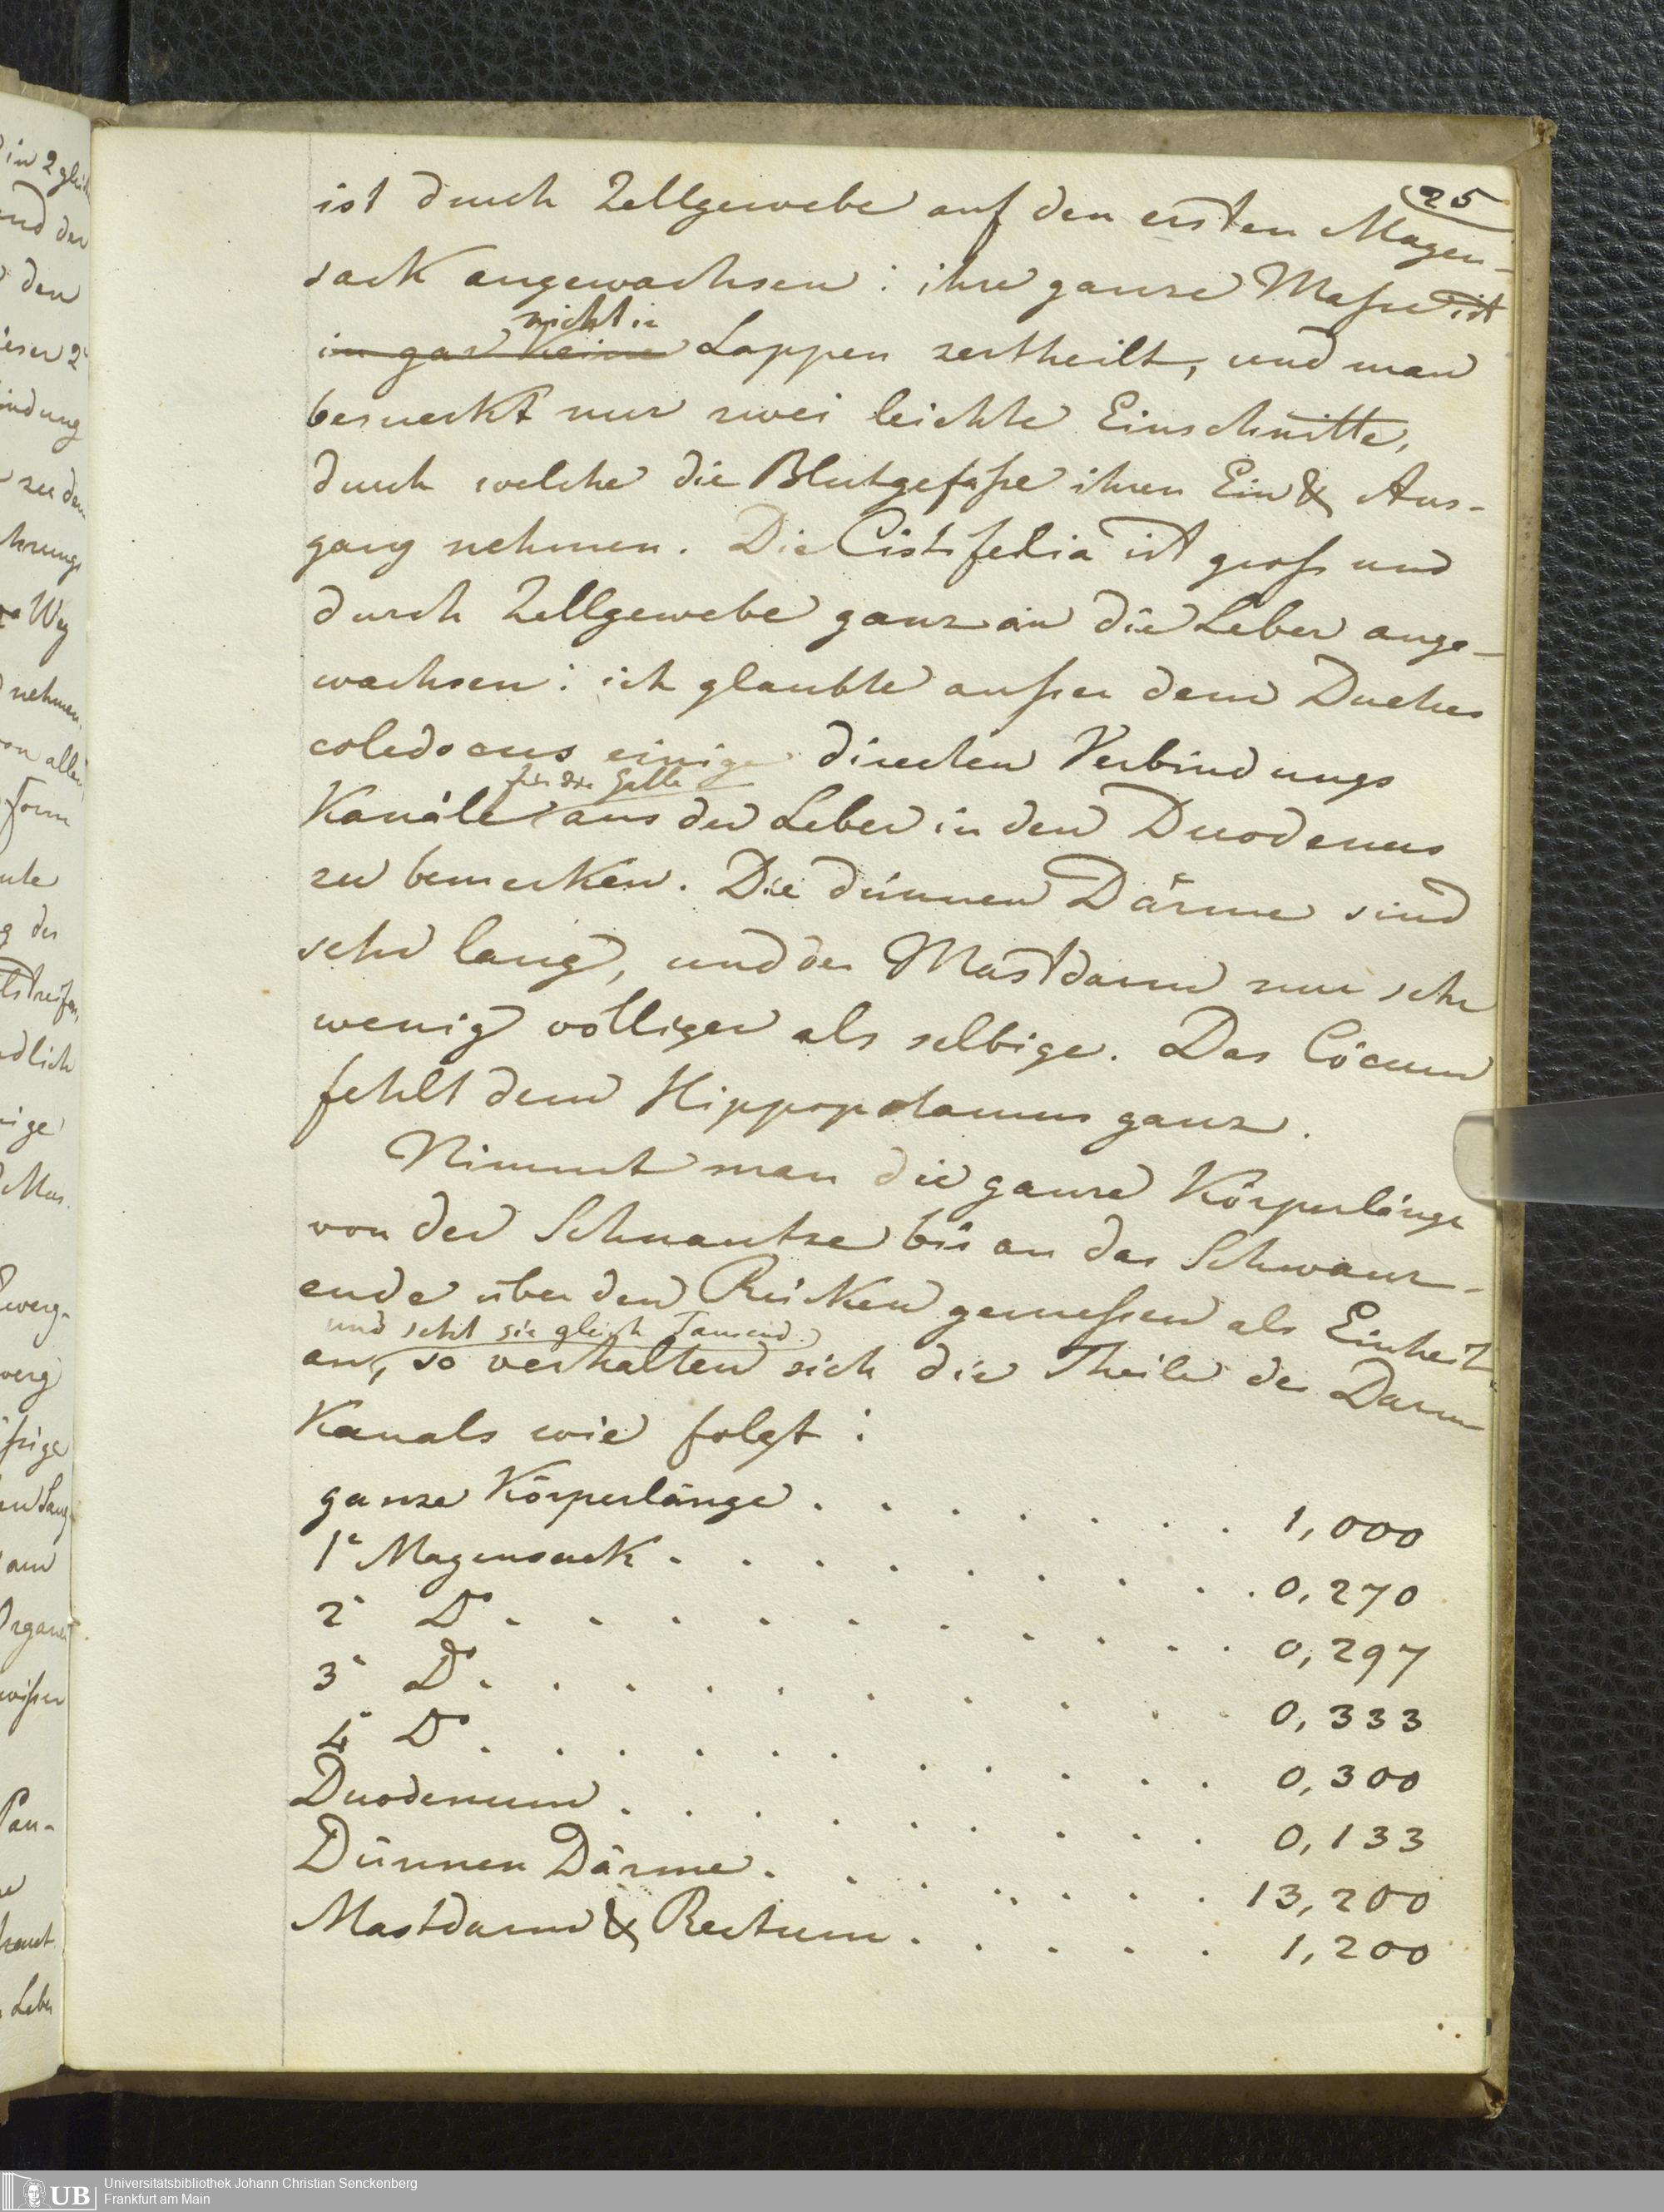 25
ist durch Zellgewebe auf den ersten Magen-
sack angewachsen: ihre ganze Maße ist
nicht in
in gar keine Lappen zertheilt, und man
bemerkt nur zwei leichte Einschnitte,
durch welche die Blutgefäße ihren Ein & Aus-
gang nehmen. Die Cistifelia ist groß und
durch Zellgewebe ganz an die Leber ange-
wachsen: ich glaubte außer dem Ductus
coledocus einige directen Verbindungs
für die Galle
Kanäle aus der Leber in den Duodenus
zu bemerken. Die dünnen Därme sind
sehr lang, und der Mastdarm nur sehr
wenig völliger als selbige. Das Cöcum
fehlt dem Hippopotamus ganz.
Nimmt man die ganze Körperlänge
von der Schnautze bis an das Schwanz-
ende über den Rücken gemeßen als Einheit
und setzt sie gleich Tausend
an, so verhalten sich die Theile des Darm
Kanals wie folgt:
ganze Körperlänge . . . . . . . 1,000
1e Magensack . . . . . . . . . 0,270
2e Do . . . . . . . . . . 0,297
3e Do . . . . . . . . . . 0,333
4e Do . . . . . . . . . . 0,300
Duodenum . . . . . . . . 0,133
Dünnen Därme . . . . . . . 13,200
Mastdarm & Rectum . . . . . 1,200
Universitätsbibliothek Johann Christian Senckenberg
Frankfurt am Main
UB